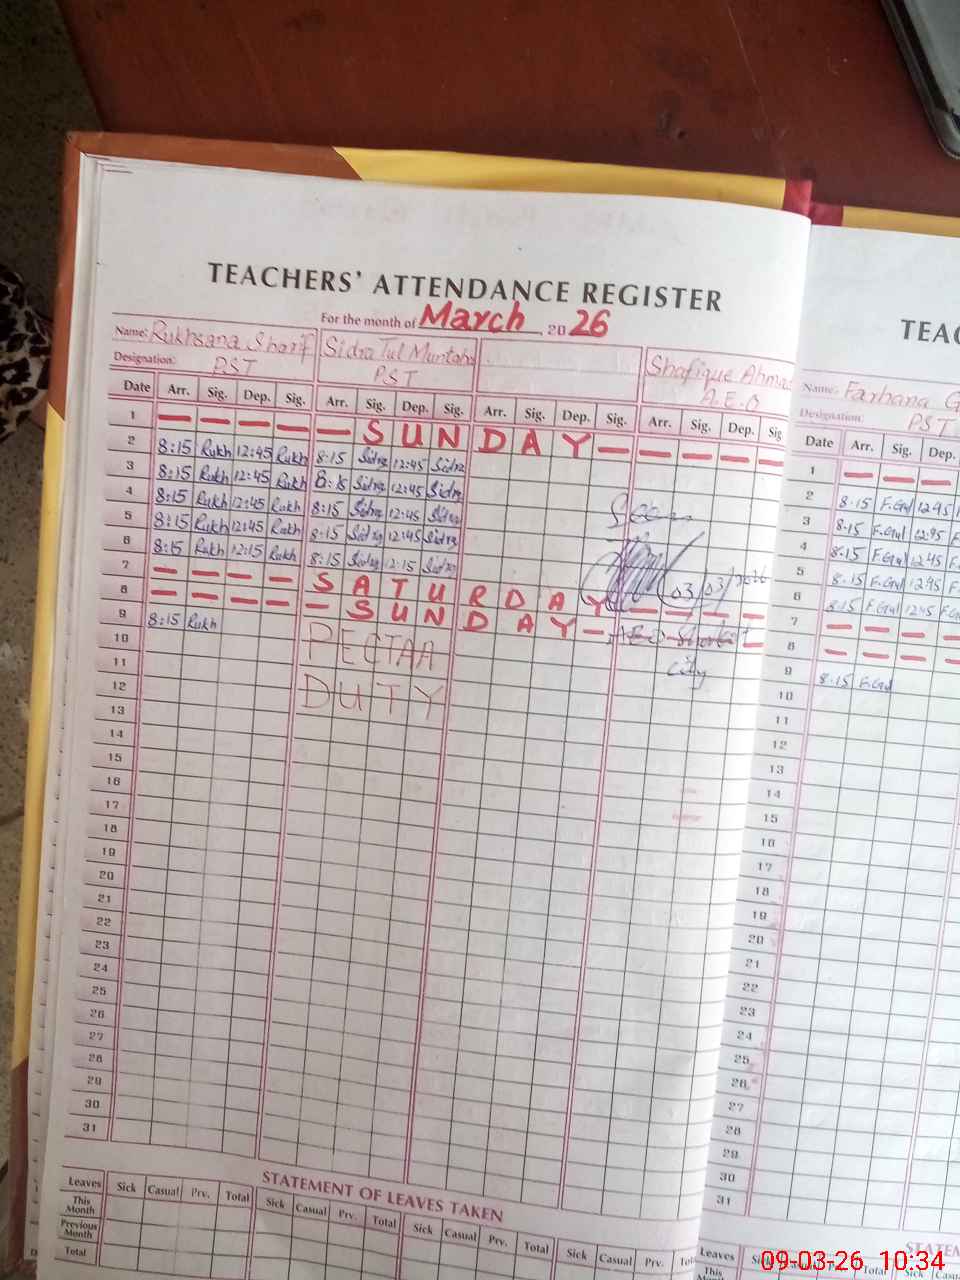 TEACHERS' ATTENDANCE REGISTER
For the month of March 2026
Name: Rukhsana Sharif Sidra Tul Muntaha Shafique Ahmad
Designation: PST PST A.E.O
Date Arr. Sig. Dep. Sig. Arr. Sig. Dep. Sig. Arr. Sig. Dep. Sig. Arr. Sig. Dep. Sig
1 — — — — — S U N D A Y — — — — —
2 8:15 Rukh 12:45 Rukh 8:15 Sidra 12:45 Sidra
3 8:15 Rukh 12:45 Rukh 8:15 Sidra 12:45 Sidra
4 8:15 Rukh 12:45 Rukh 8:15 Sidra 12:45 Sidra Seen
5 8:15 Rukh 12:45 Rukh 8:15 Sidra 12:45 Sidra
6 8:15 Rukh 12:15 Rukh 8:15 Sidra 12:15 Sidra
7 — — — — S A T U R D A Y — — — — 03/03/
8 — — — — — S U N D A Y — —
9 8:15 Rukh PECTAA AEO
10 city
11
12 DUTY
13
14
15
16
17
18
19
20
21
22
23
24
25
26
27
28
29
30
31
STATEMENT OF LEAVES TAKEN
Leaves Sick Casual Prv. Total Sick Casual Prv. Total Sick Casual Prv. Total Sick Casual Prv.
This Month
Previous Month
Total
TEAC
Name: Farhana G
Designation: PST
Date Arr. Sig. Dep.
1 — — —
2 8:15 F.Gul 12:45
3 8:15 F.Gul 12:45
4 8:15 F.Gul 12:45
5 8:15 F.Gul 12:45
6 8:15 F.Gul 12:45
7 — — —
8 — — —
9 8:15 F.Gul
10
11
12
13
14
15
16
17
18
19
20
21
22
23
24
25
26
27
28
29
30
31
STATEM
Leaves Sick Casual Prv. Total Sick Cas
This Month
09-03-26 10:34